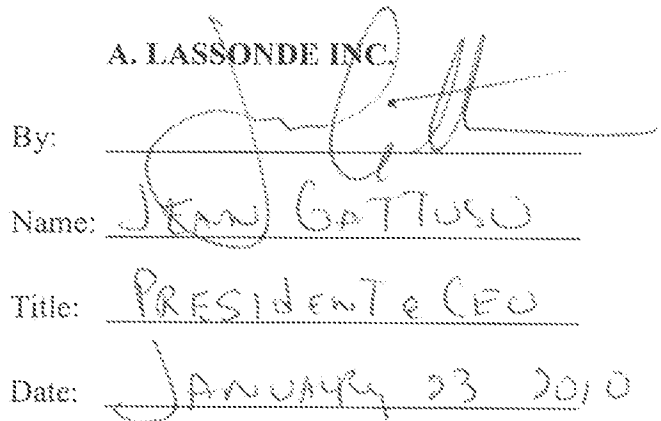 A. LASSONDE INC.
By:
Name: JEAN GATTUSO
Title: PRESIdENT & CEO
Date: JANUARY 23 2010